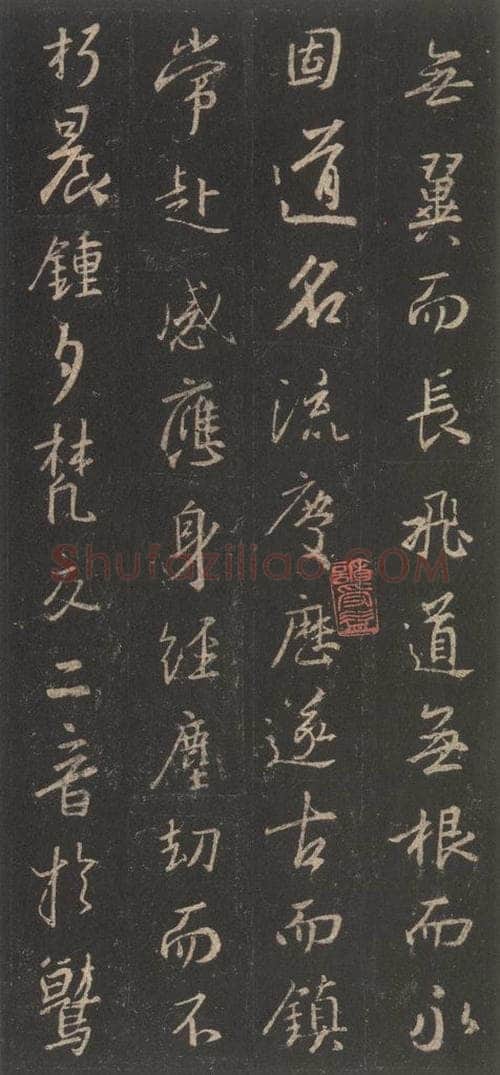 無翼而長飛道無根而永
固道名流慶歷遂古而鎮
常赴感應身經塵劫而不
朽晨鍾夕梵交二音於鷲
Shufaziliao.com